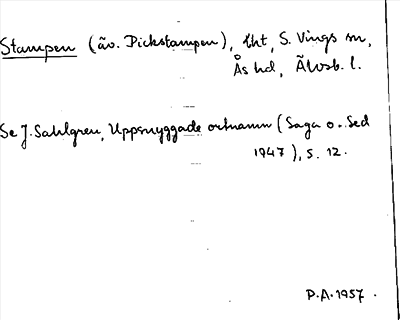 Stampen (äv. Dickstampen), lht, S. Vings sn,
Ås hd, Älvsb. l.
Se J. Sahlgren, Uppsnyggade ortnamn (Saga o. Sed
1947), s. 12.
P.A. 1957.